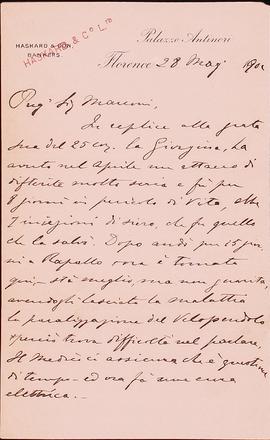 HASKARD & SON,
BANKERS.
HASKARD & Co Ld
Palazzo Antinori
Florence 28 Mag. 190
Preg. Sig Marconi,
In replica alla grata
sua del 25 la Giorgina, ha
avuto nell'Aprile un attacco di
difterite molto seria e fù per
8 giorni in pericolo di Vita, ebbe
7 iniezioni di siero, che fu quello
che la salvò. Dopo andò per 15 gior
ni a Rapallo ora è tornata
qui - stà meglio, ma non guarita,
avendogli lasciato la malattia
la paralizzazione del Velopendolo
e perciò trova difficoltà nel parlare.
Il Medico ci assicura che è questione
di tempo - ed ora fà una cura
elettrica. -